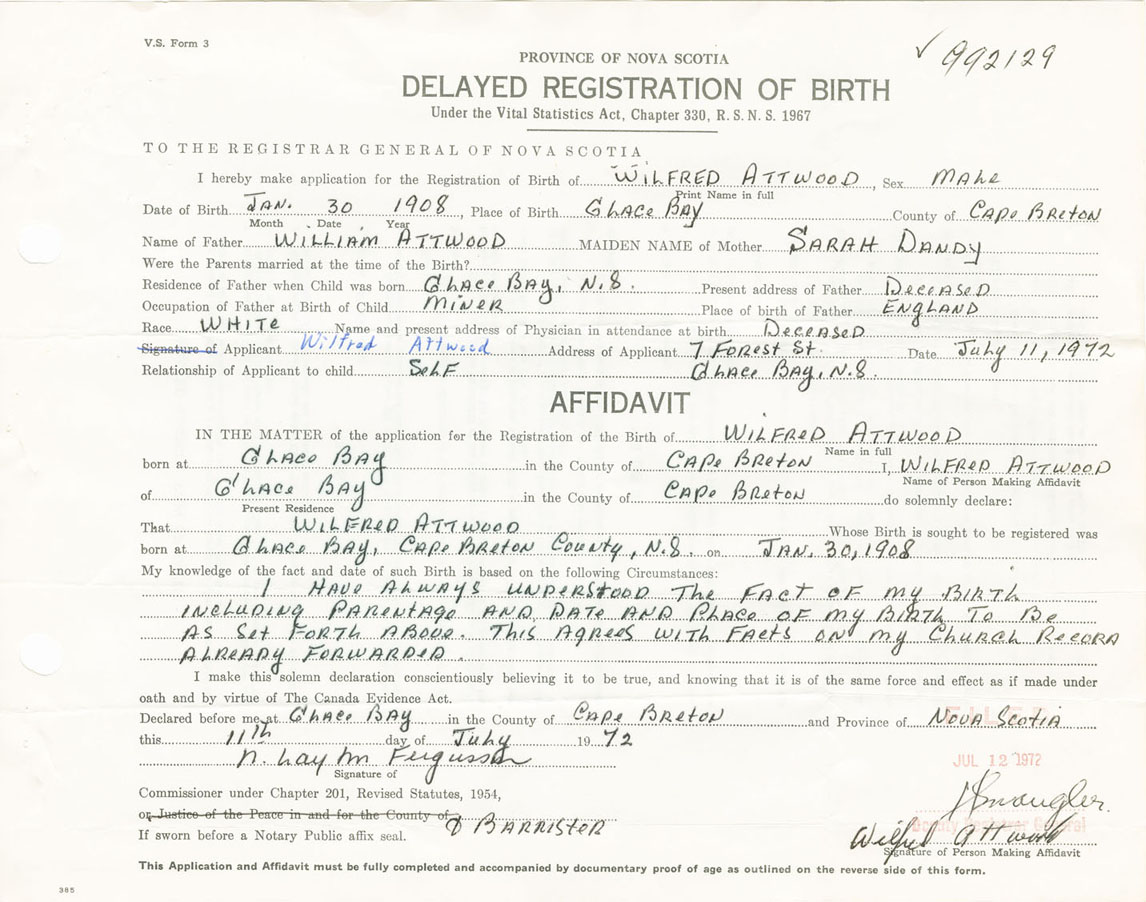 V.S. Form 3
✓ 992129
PROVINCE OF NOVA SCOTIA
DELAYED REGISTRATION OF BIRTH
Under the Vital Statistics Act, Chapter 330, R. S. N. S. 1967
TO THE REGISTRAR GENERAL OF NOVA SCOTIA
I hereby make application for the Registration of Birth of WILFRED ATTWOOD, Sex MALE
Print Name in full
Date of Birth JAN. 30 1908, Place of Birth GLACE BAY County of CAPE BRETON
Month Date Year
Name of Father WILLIAM ATTWOOD MAIDEN NAME of Mother SARAH DANDY
Were the Parents married at the time of the Birth?
Residence of Father when Child was born GLACE BAY, N.S. Present address of Father DECEASED
Occupation of Father at Birth of Child MINER Place of birth of Father ENGLAND
Race WHITE Name and present address of Physician in attendance at birth DECEASED
Signature of Applicant Wilfred Attwood Address of Applicant 7 FOREST ST. Date JULY 11, 1972
Relationship of Applicant to child SELF GLACE BAY, N.S.
AFFIDAVIT
IN THE MATTER of the application for the Registration of the Birth of WILFRED ATTWOOD
Name in full
born at GLACE BAY in the County of CAPE BRETON I, WILFRED ATTWOOD
Name of Person Making Affidavit
of GLACE BAY in the County of CAPE BRETON do solemnly declare:
Present Residence
That WILFRED ATTWOOD Whose Birth is sought to be registered was
born at GLACE BAY, CAPE BRETON COUNTY, N.S. on JAN. 30, 1908
My knowledge of the fact and date of such Birth is based on the following Circumstances:
I HAVE ALWAYS UNDERSTOOD THE FACT OF MY BIRTH
INCLUDING PARENTAGE AND DATE AND PLACE OF MY BIRTH TO BE
AS SET FORTH ABOVE. THIS AGREES WITH FACTS ON MY CHURCH RECORD
ALREADY FORWARDED.
I make this solemn declaration conscientiously believing it to be true, and knowing that it is of the same force and effect as if made under
oath and by virtue of The Canada Evidence Act.
Declared before me at GLACE BAY in the County of CAPE BRETON and Province of NOVA SCOTIA
FILED
this 11th day of JULY 1972
JUL 12 1972
N. Layton Fergusson
Signature of
Commissioner under Chapter 201, Revised Statutes, 1954,
or Justice of the Peace in and for the County of
& BARRISTER
If sworn before a Notary Public affix seal.
Deputy Registrar General
Wilfred Attwood
Signature of Person Making Affidavit
This Application and Affidavit must be fully completed and accompanied by documentary proof of age as outlined on the reverse side of this form.
385